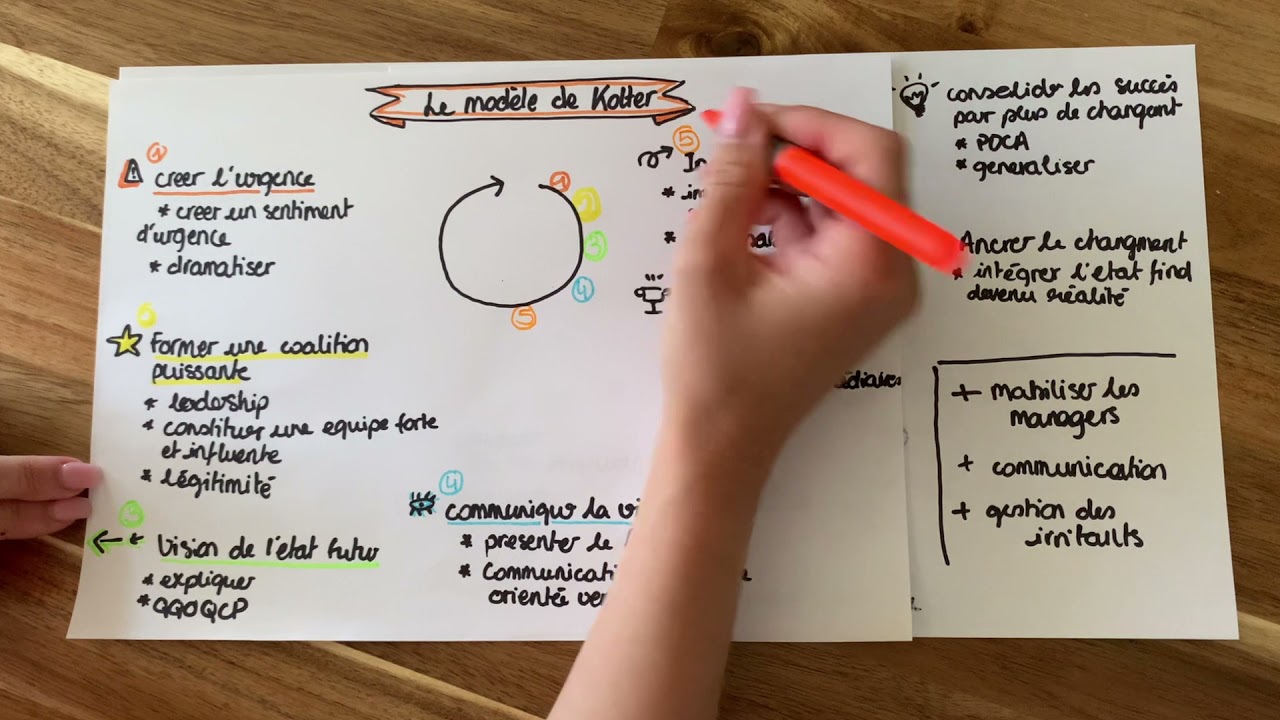 Le modèle de Kotter
1
creer l'urgence
* creer un sentiment
d'urgence
* dramatiser
1
2
3
4
5
2
Former une coalition
puissante
* leadership
* constituer une equipe forte
et influente
* légitimité
3
Vision de l'etat futur
* expliquer
* QQOQCP
4
communiquer la vi
* presenter le
* Communicati
orientée ver
5
In
* im
*
consolider les succès
pour plus de changent
* PDCA
* generaliser
Ancrer le changment
* intégrer l'etat find
devenu réalité
+ mobiliser les
managers
+ communication
+ gestion des
irritaults